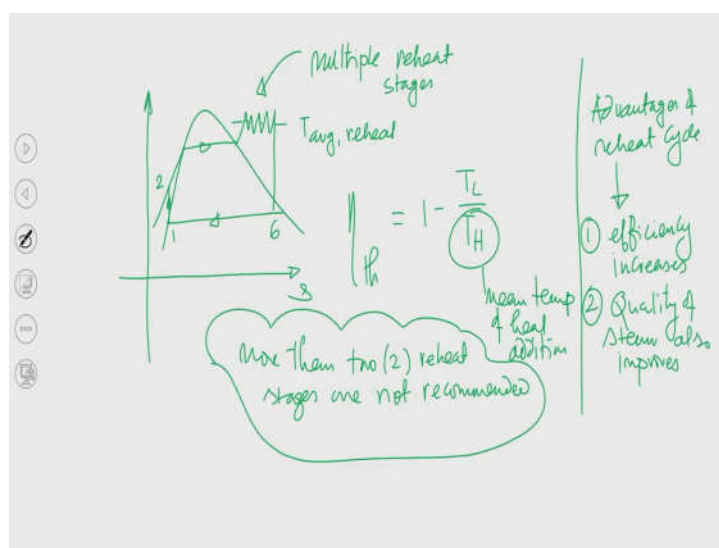 Multiple reheat
stages
Tavg, reheat
2
1
6
s
ηth = 1 - TL
TH
mean temp
of heat
addition
More than two (2) reheat
stages are not recommended
Advantages of
reheat cycle
1 efficiency
increases
2 Quality of
steam also
improves